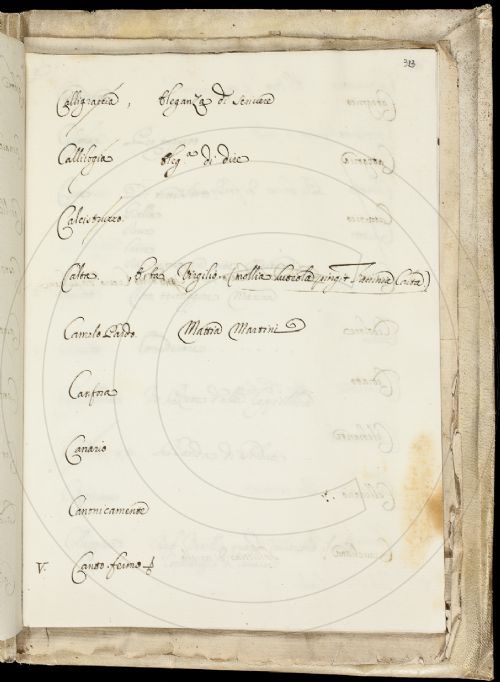 313
Calligrafia, Eleganza di scrivere
Callilogia Eleg.a di dire
Calpistrare.
Calta. Erba Virgilio. (mollia luteola pingit Vaccinia Caltà)
Camelo Pardo. Mattia Martini
Canfora
Canario
Canonicamente
V. Canto fermo